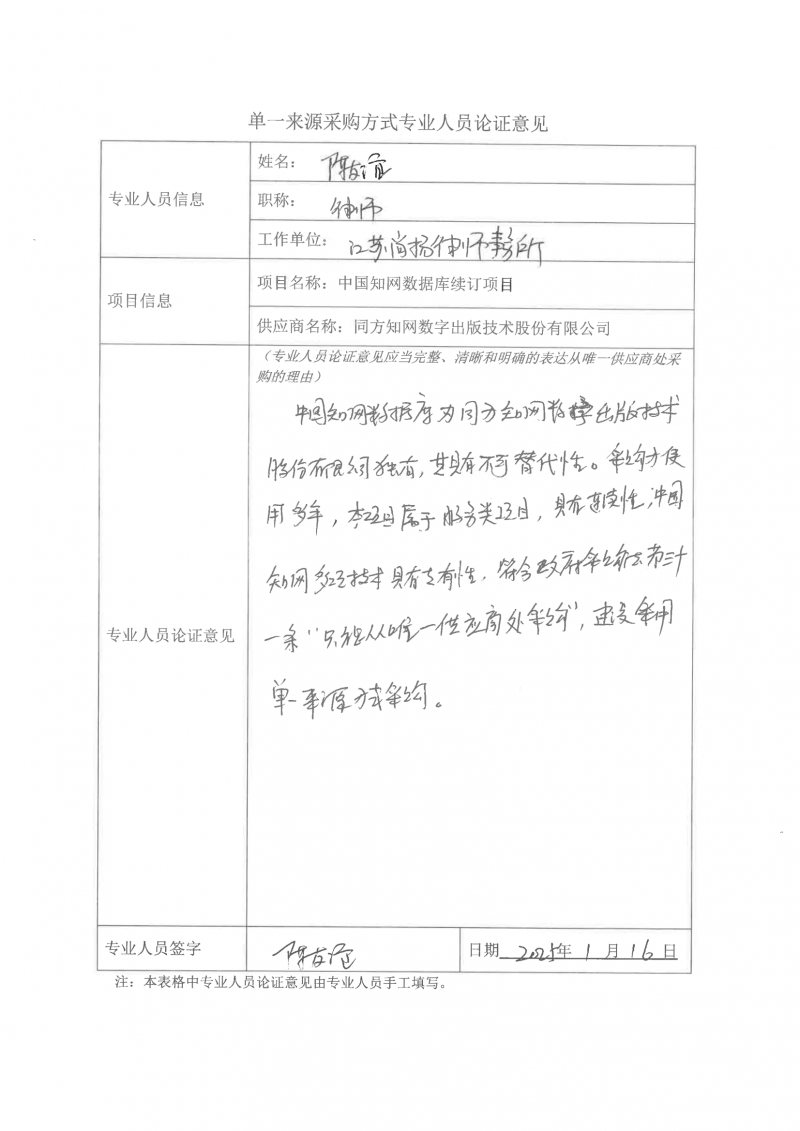 单一来源采购方式专业人员论证意见
专业人员信息
姓名： 陈友谊
职称： 律师
工作单位： 江苏尚扬律师事务所
项目信息
项目名称：中国知网数据库续订项目
供应商名称：同方知网数字出版技术股份有限公司
专业人员论证意见
（专业人员论证意见应当完整、清晰和明确的表达从唯一供应商处采
购的理由）
中国知网数据库为同方知网数字出版技术
股份有限公司独有，其具有不可替代性。采购方使
用多年，本项目属于服务类项目，具有连续性，中国
知网多项技术具有专有性，符合政府采购法第三十
一条“只能从唯一供应商处采购”，建议采用
单一来源方式采购。
专业人员签字 陈友谊
日期 2025年 1 月 16 日
注：本表格中专业人员论证意见由专业人员手工填写。